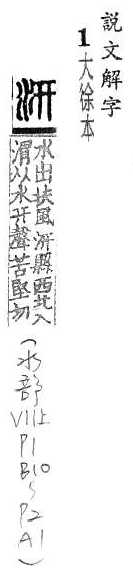 說文解字
1大徐本
汧
水出扶風汧縣西北入
渭从水幵聲苦堅切
(水部
V11上
P1
B10
~
P2
A1)